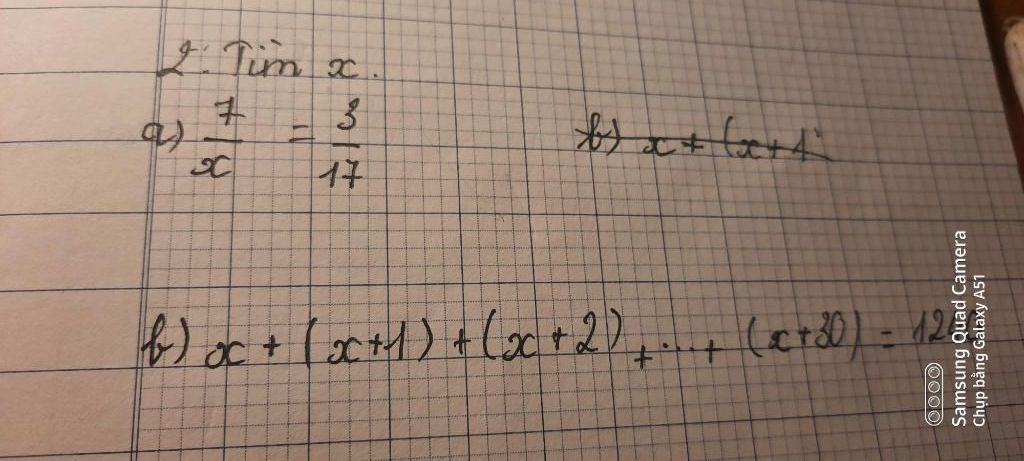 2: Tìm x.
a) 7/x = 3/17
b) x + (x+1
b) x + (x+1) + (x+2) + ... + (x+30) =
Samsung Quad Camera
Chụp bằng Galaxy A51